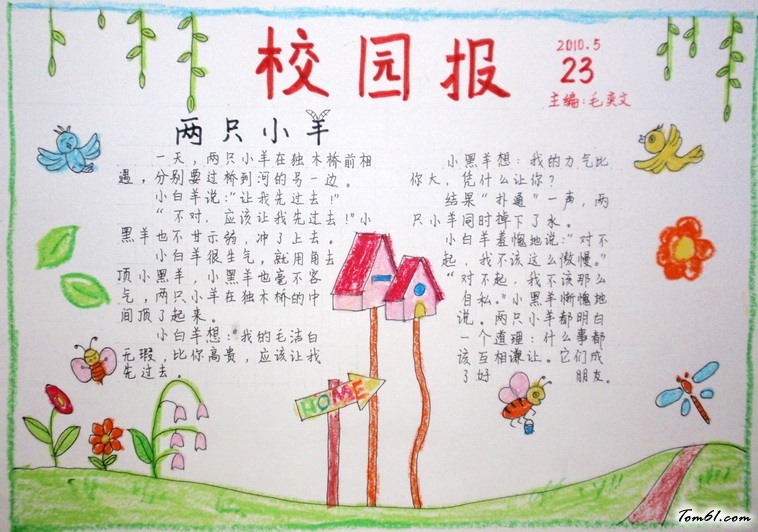 校园报
2010.5
23
主编:毛奕文
两只小羊
一天，两只小羊在独木桥前相
遇，分别要过桥到河的另一边。
小白羊说:"让我先过去!"
"不对，应该让我先过去!"小
黑羊也不甘示弱，冲了上去。
小白羊很生气，就用角去
顶小黑羊，小黑羊也毫不客
气，两只小羊在独木桥的中
间顶了起来。
小白羊想:"我的毛洁白
无瑕，比你高贵，应该让我
先过去。
小黑羊想:我的力气比
你大，凭什么让你?
结果"扑通"一声，两
只小羊同时掉下了水。
小白羊羞愧地说:"对不
起，我不该这么傲慢。"
"对不起，我不该那么
自私。"小黑羊惭愧地
说。两只小羊都明白
一个道理:什么事都
该互相谦让。它们成
了好朋友。
HOME
Tom61.com